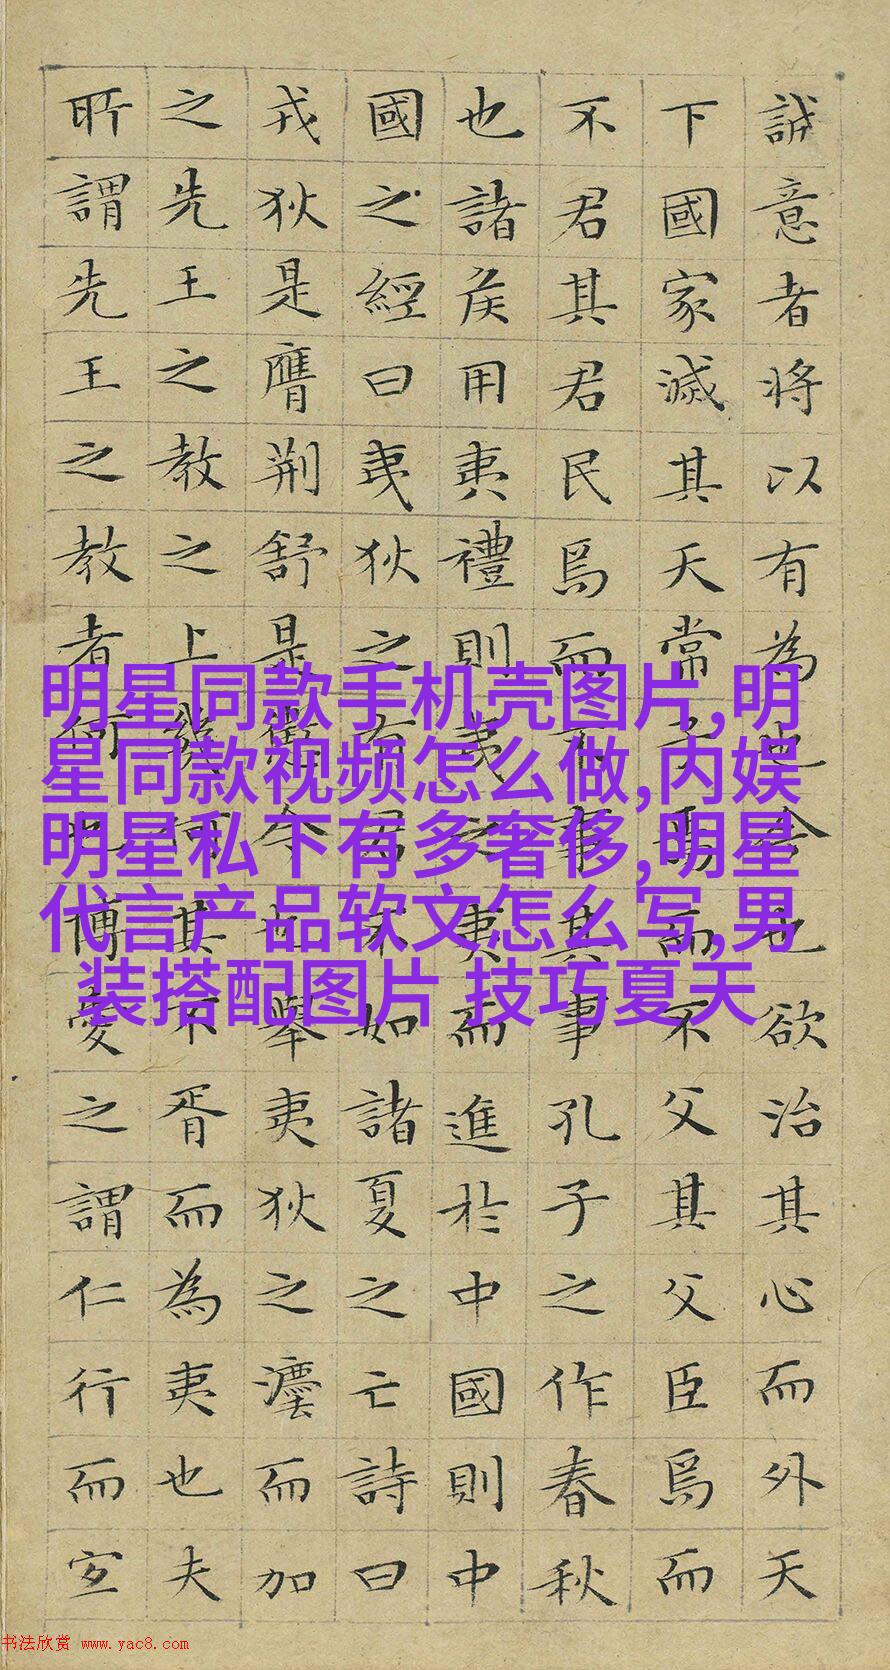 誠意者将以有為也今也欲治其心而外天
下國家滅其天常子焉而不父其父臣焉而
不君其君民焉而不事其事孔子之作春秋
也諸侯用夷禮則夷之夷而進於中國則中
國之經曰夷狄之有君不如諸夏之亡詩曰
戎狄是膺荆舒是懲今也舉夷狄之灋而加
之先王之教之上幾何其不胥而為夷也夫
所謂先王之教者何也博愛之謂仁行而宜
明星同款手机壳图片,明
星同款视频怎么做,内娱
明星私下有多奢侈,明星
代言产品软文怎么写,男
装搭配图片 技巧夏天
书法欣赏 www.yac8.com